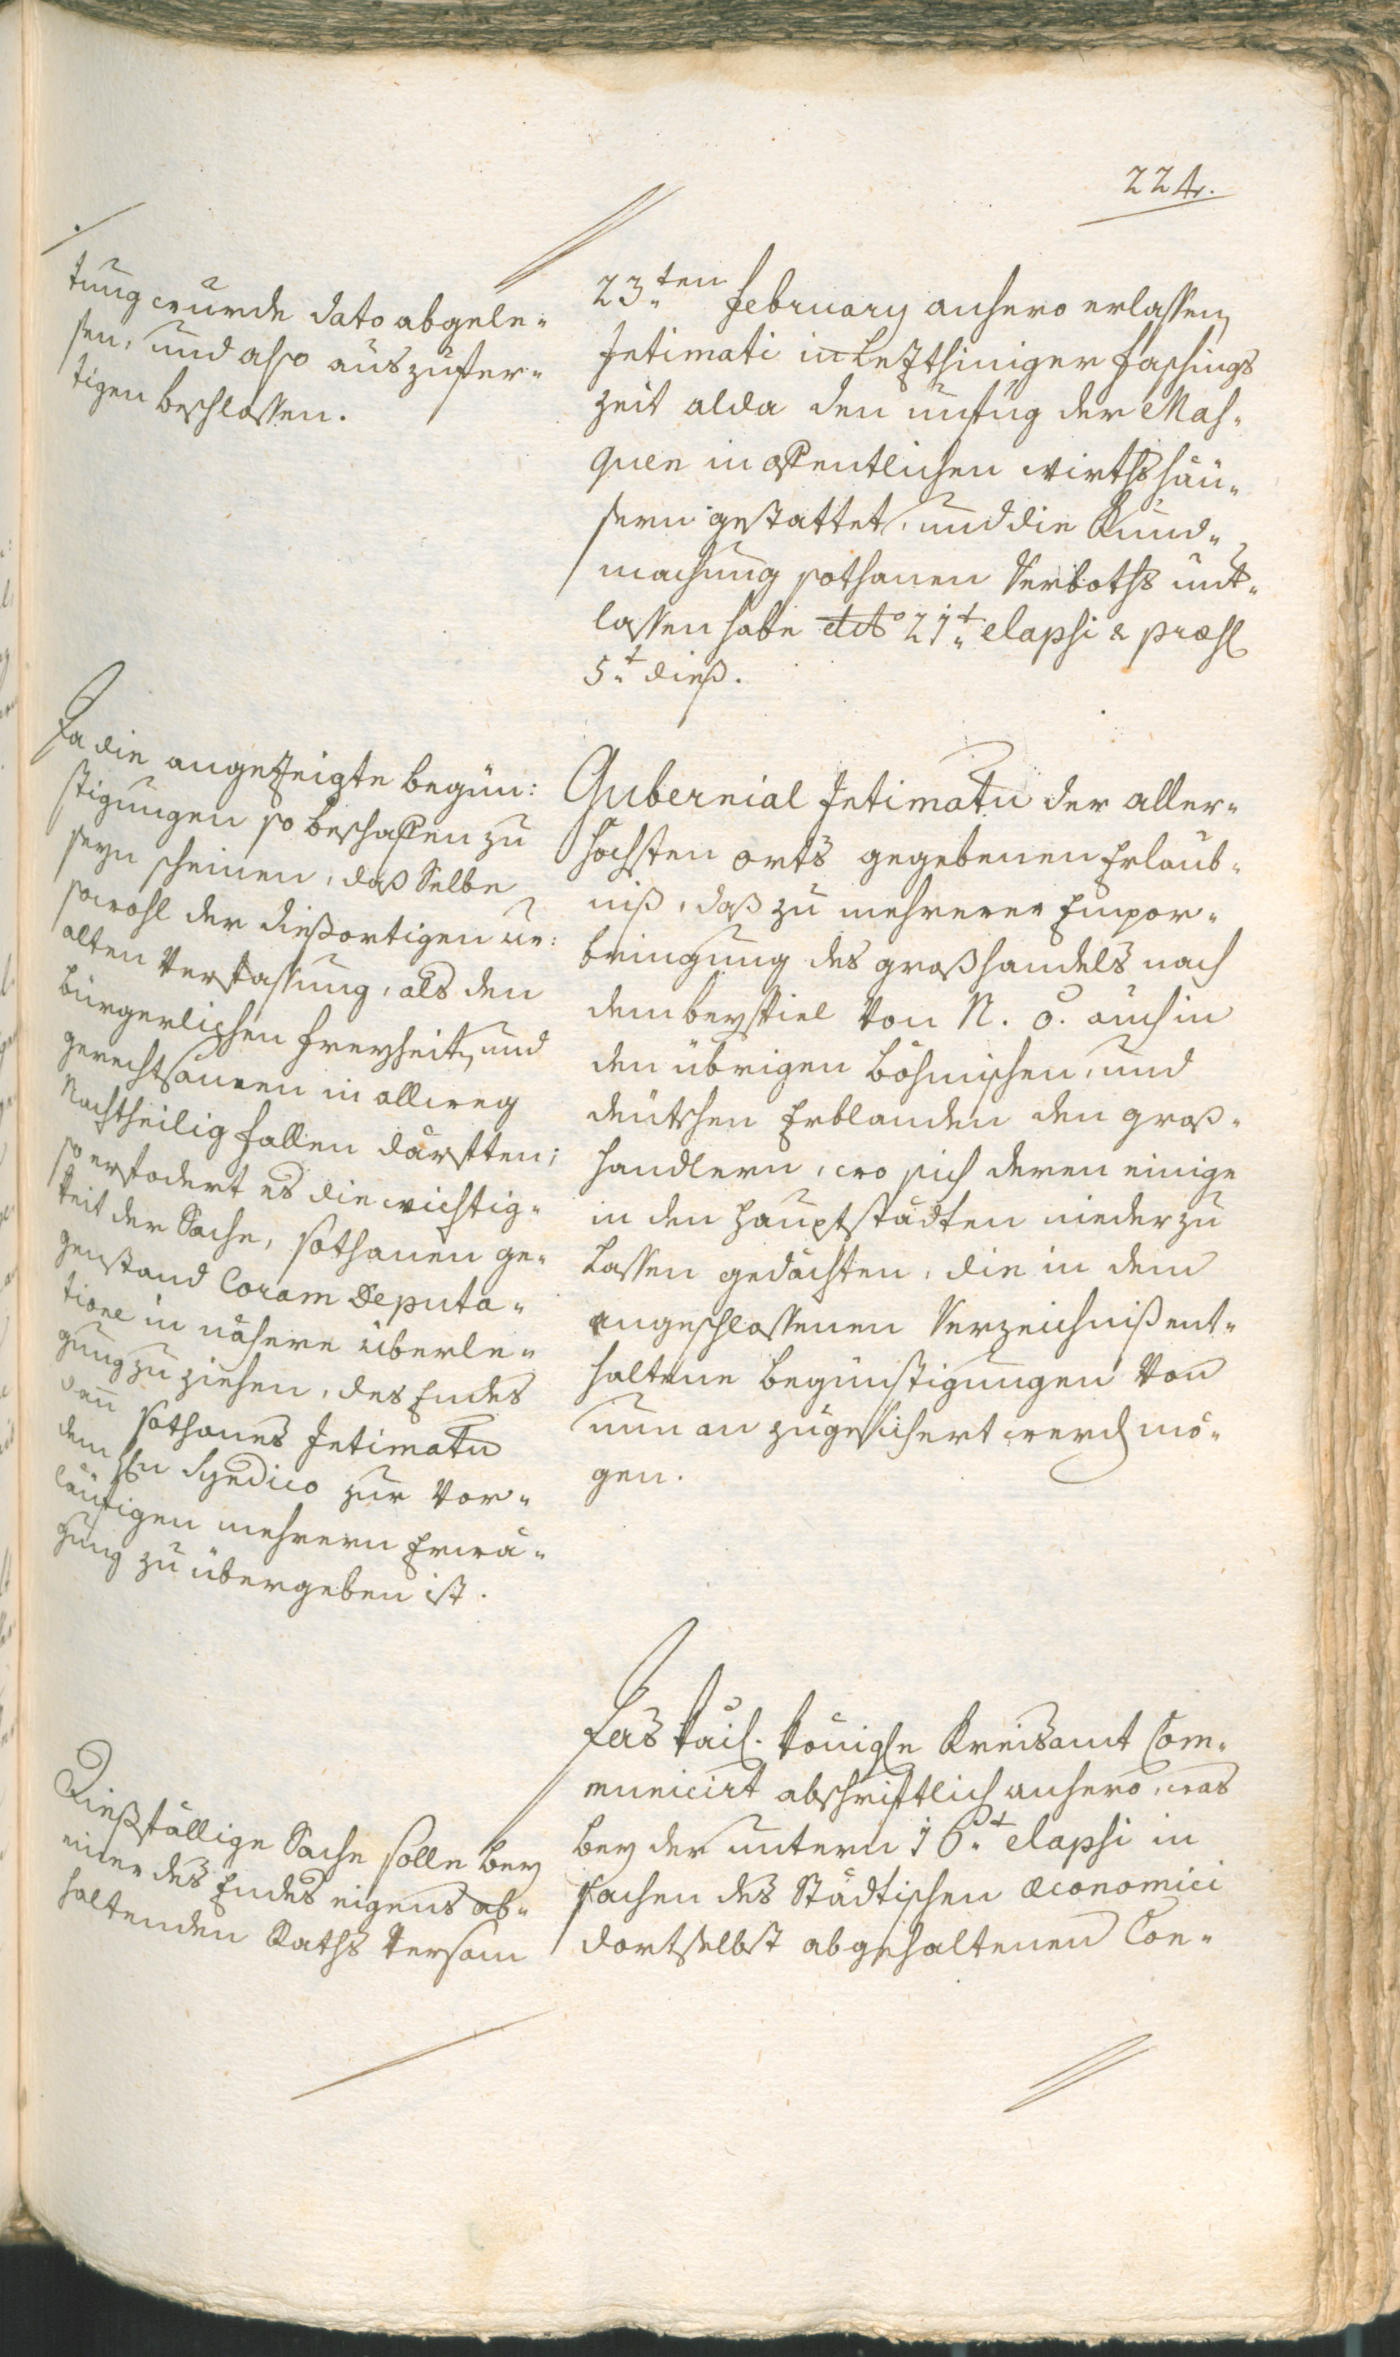 224.
tung wurde dato abgele-
sen, und also auszufer-
tigen beschlossen.
Da die angezeigte begün:
stigungen so beschaffen zu
seyn scheinen, daß Selbe
sowohl der dießortigen ur:
alten Verfassung, als den
bürgerlichen Freyheit, und
gerechtsamen in allweg
Nachtheilig fallen därfften;
so erfodert es die wichtig-
keit der Sache, sothanen ge-
genstand Coram Deputa-
tione in nähere überle-
gung zu ziehen, des Endes
dann sothanes Intimatu
dem Hn Syndico zur Vor-
läufigen mehrern Erwä-
gung zu übergeben ist.
Dießfällige Sache solle bey
einer des Endes eigens ab-
haltenden Raths Versam
23.ten February anhero erlassen
Intimati in letzthiniger Faschings
zeit alda den unfug der Mas-
quen in öffentlichen wirthshäu-
sern gestattet, und die Kund-
machung sothanen Verboths unt-
lassen habe ddto 21.t elapsi & præs
5.t dieß.
Gubernial Intimatu der aller-
höchsten orts gegebenen Erlaub-
niß, daß zu mehrerer Empor-
bringung des großhandels nach
dem beyspiel von N. Ö. auch in
den übrigen böhmischen, und
deütschen Erblanden den groß-
handlern, wo sich deren einige
in den Hauptstädten niederzu
lassen gedächten, die in dem
angeschlossenen Verzeichniß ent-
haltene begünstigungen von
nun an zugesichert werd mö-
gen.
Das kais. königle Kreisamt Com-
municirt abschriftlich anhero, was
bey der untern 16.t elapsi in
sachen des Städtischen œconomici
dortselbst abgehaltenen Con-